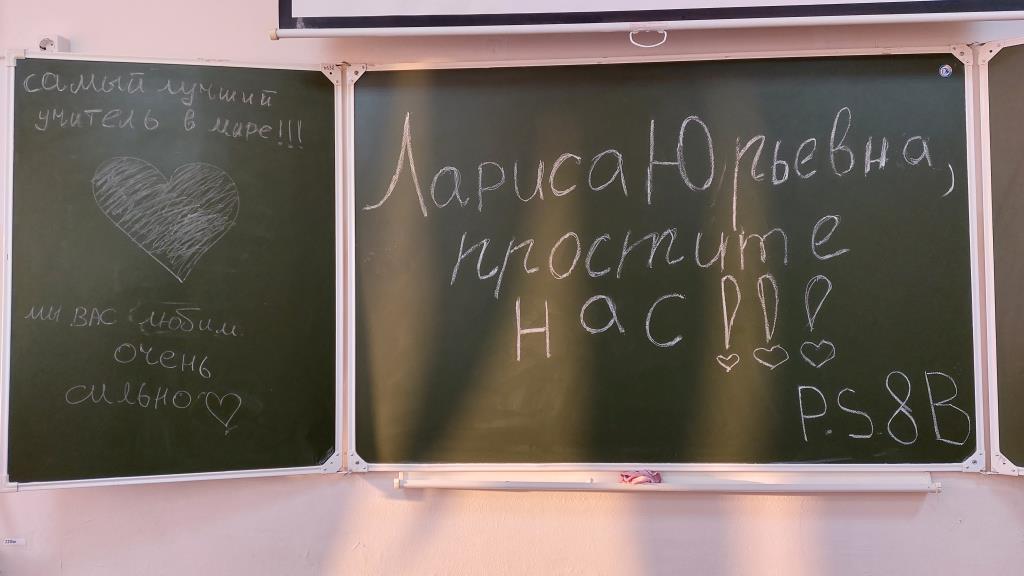 самый лучший
учитель в мире!!!
мы ВАС любим
очень
сильно
Лариса Юрьевна,
простите
нас!!!
P.S. 8В